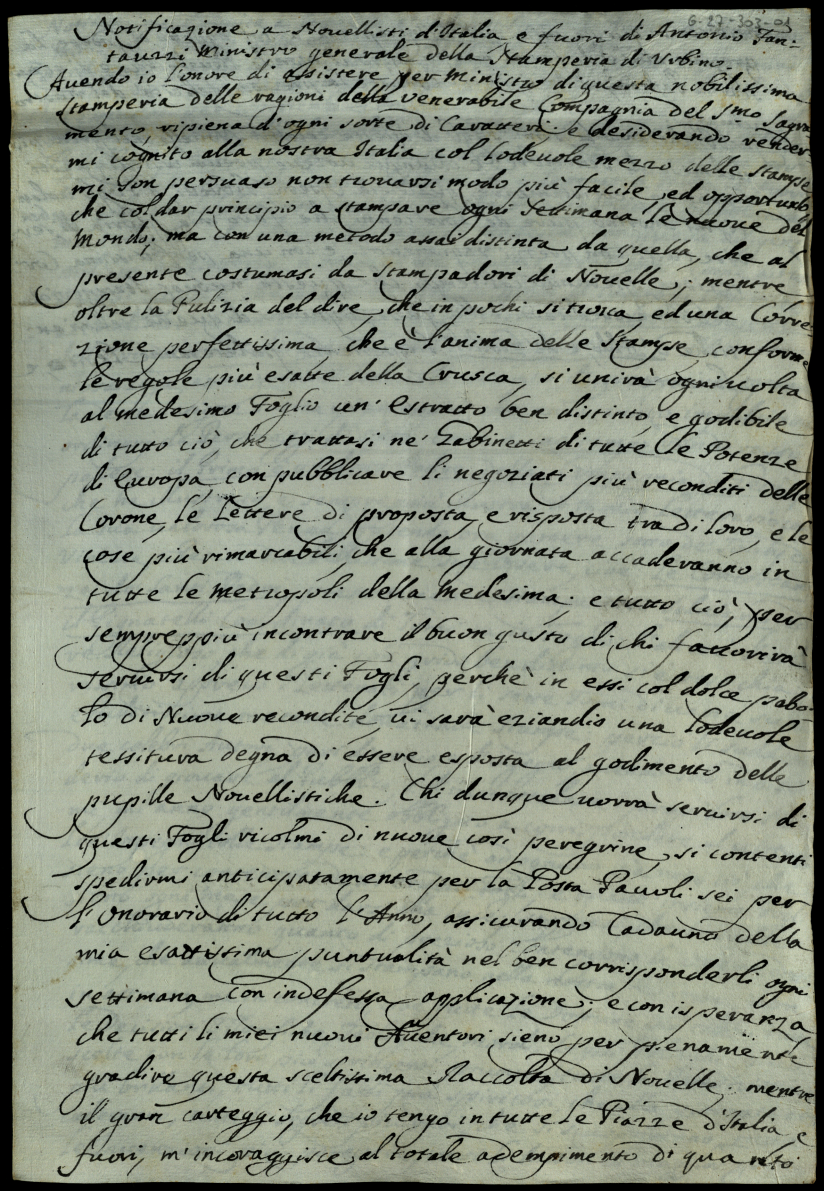 6-27-303-01
Notificazione a Nouellisti d'Italia e fuori di Antonio Fan-
tauzzi Ministro generale della Stamperia di Urbino.
Auendo io l'onore di assistere per Ministro di questa nobilissima
Stamperia delle ragioni della Venerabile Compagnia del Smo Sagra
mento, ripiena d'ogni sorte di Caratteri: e desiderando render-
mi cognito alla nostra Italia col lodeuole mezzo delle stampe
mi son persuaso non trouarsi modo più facile, ed opportuno
che col dar principio a stampare ogni Settimana le nuoue del
Mondo; ma con una metodo assai distinta da quella, che al
presente costumasi da Stampadori di Nouelle; mentre
oltre la Pulizia del dire, che in pochi si troua, ed una Corre-
zione perfettissima, che è l'anima delle Stampe, conforme
le regole più esatte della Crusca, si unirà ogni uolta
al medesimo Foglio un' estratto ben distinto, e godibile
di tutto ciò, che trattasi ne' Gabinetti di tutte le Potenze
di Europa, con pubblicare li negoziati più reconditi delle
Corone, le Lettere di proposta, e risposta tra di loro, e le
cose più rimarcabili, che alla giornata accaderanno in
tutte le metropoli della medesima; e tutto ciò, per
sempreppiù incontrare il buon gusto di chi fauorirà
seruirsi di questi Fogli, perchè in essi col dolce pabo-
lo di Nuoue recondite, ui sarà eziandio una lodeuole
tessitura degna di essere esposta al godimento delle
pupille Nouellistiche. Chi dunque uorrà seruirsi di
questi Fogli ricolmi di nuoue così peregrine, si contenti
spedirmi anticipatamente per la Posta Pauoli sei per
l'Onorario di tutto l'Anno, assicurando Cadauno della
mia esattissima puntualità nel ben corrisponderli ogni
settimana con indefessa applicazione; e con isperanza
che tutti li miei nuoui Auentori sieno per pienamente
gradire questa sceltissima Raccolta di Nouelle; mentre
il gran carteggio, che io tengo in tutte le Piazze d'Italia, e
fuori, m'incoraggisce al totale adempimento di quanto